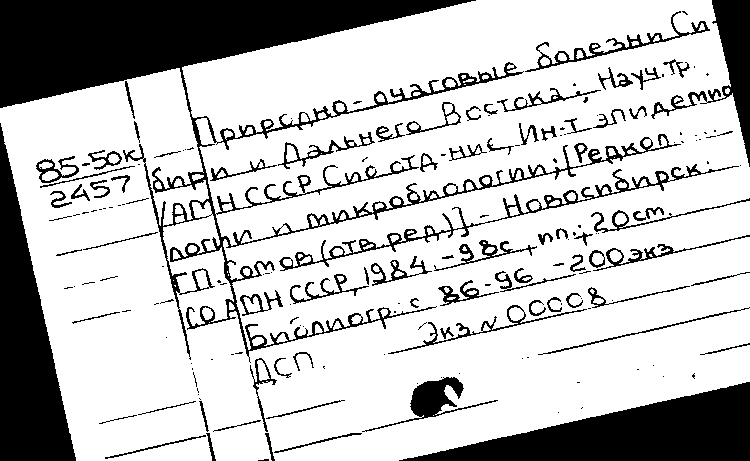 Природно-очаговые болезни Си-
85-50к
2457
бири и Дальнего Востока: Науч.тр.
/АМН СССР, Сиб отд-ние, Ин-т эпидемио
логии и микробиологии; [Редкол.: ...
Г.П. Сомов (отв ред.)]. - Новосибирск:
СО АМН СССР, 1984. - 98с., ил.; 20см.
Библиогр.: с 86-96. - 200экз
ДСП. Экз N 00008